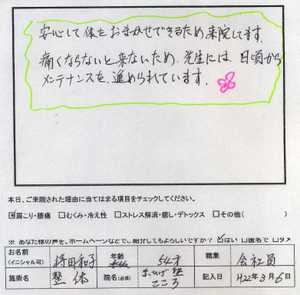 安心して体をおまかせできるため来院してます。
痛くならないと来ないため、先生には、日頃から
メンテナンスを、進められています。
本日、ご来院された理由に当てはまる項目をチェックしてください。
☑肩こり・腰痛 □むくみ・冷え性 □ストレス解消・癒し・デトックス □その他( )
※ あなた様の声を、ホームページなどでご紹介してもよろしいですか？ ☑はい □匿名で □ダメ
お名前
(イニシャル可) 年齢 54才 職業 会社員
施術名 整体 院名(必須) こころ 記入日 H22年3月6日